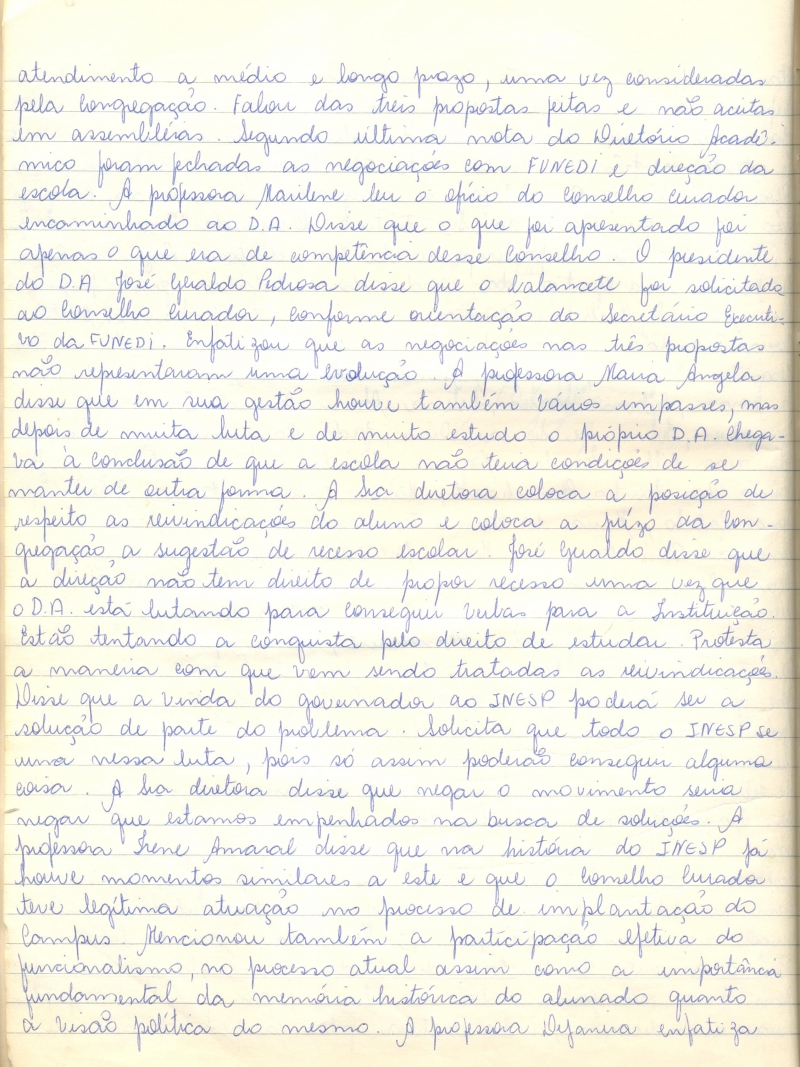 atendimento a médio e longo prazo, uma vez consideradas
pela Congregação. Falou das três propostas feitas e não aceitas
em assembléias. Segundo última nota do Diretório Acadê-
mico foram fechadas as negociações com FUNEDI e direção da
escola. A professora Marilene leu o ofício do Conselho Curador
encaminhado ao D.A. Disse que o que foi apresentado foi
apenas o que era de competência desse Conselho. O presidente
do D.A José Geraldo Pedrosa disse que o balancete foi solicitado
ao Conselho Curador, conforme orientação do Secretário Executi-
vo da FUNEDI. Enfatizou que as negociações nas três propostas
não representaram uma evolução. A professora Maria Angela
disse que em sua gestão houve também vários impasses, mas
depois de muita luta e de muito estudo o próprio D.A. chega-
va à conclusão de que a escola não teria condições de se
manter de outra forma. A Sra diretora coloca a posição de
respeito as reivindicações do aluno e coloca a juízo da Con-
gregação, a sugestão de recesso escolar. José Geraldo disse que
a direção não tem direito de propor recesso uma vez que
o D.A. está lutando para conseguir verbas para a Instituição.
Estão tentando a conquista pelo direito de estudar. Protesta
a maneira com que vem sendo tratadas as reivindicações.
Disse que a vinda do governador ao INESP poderá ser a
solução de parte do problema. Solicita que todo o INESP se
una nessa luta, pois só assim poderão conseguir alguma
coisa. A Sra diretora disse que negar o movimento seria
negar que estamos empenhados na busca de soluções. A
professora Irene Amaral disse que na história do INESP já
houve momentos similares a este e que o Conselho Curador
teve legítima atuação no processo de implantação do
Campus. Mencionou também a participação efetiva do
funcionalismo, no processo atual assim como a importância
fundamental da memória histórica do alunado quanto
a visão política do mesmo. A professora Dejanira enfatiza